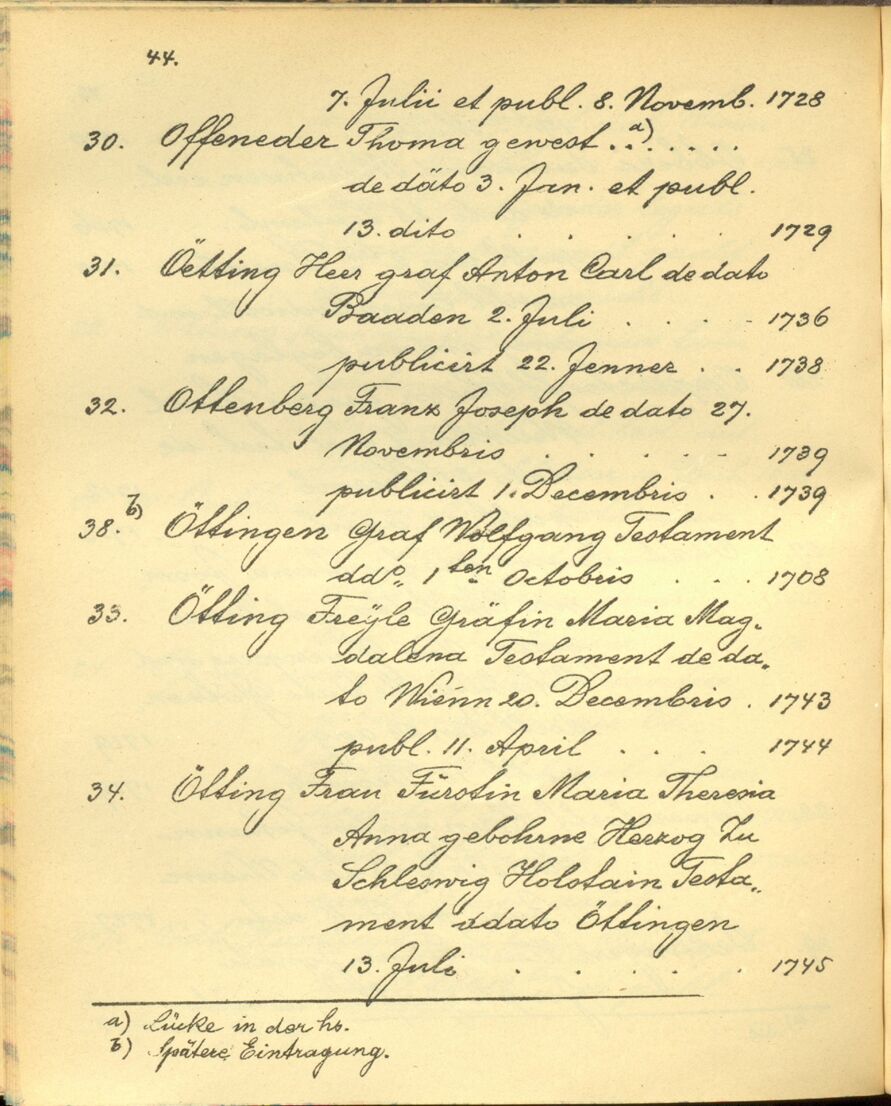 44.
7. Julii et publ. 8. Novemb. 1728
30. Offeneder Thoma gewest . . a) . . . . . .
de däto 3. Jan. et publ.
13. dito . . . . . 1729
31. Öetting Herr graf Anton Carl de dato
Baaden 2. Juli . . . - 1736
publicirt 22. Jenner . . 1738
32. Ottenberg Franz Joseph de dato 27.
Novembris . . . . - 1739
publicirt 1. Decembris . . 1739
38. b) Öttingen Graf Wolfgang Testament
ddo„ 1ten Octobris . . . 1708
33. Ötting Freÿle Gräfin Maria Mag„
dalena Testament de da„
to Wienn 20. Decembris . 1743
publ. 11. April . . . 1744
34. Ötting Frau Fürstin Maria Theresia
Anna gebohrne Herzog Zu
Schleswig Holstain Testa„
ment ddato Öttingen
13. Juli . . . . . 1745
a) Lücke in der hs.
b) Spätere Eintragung.